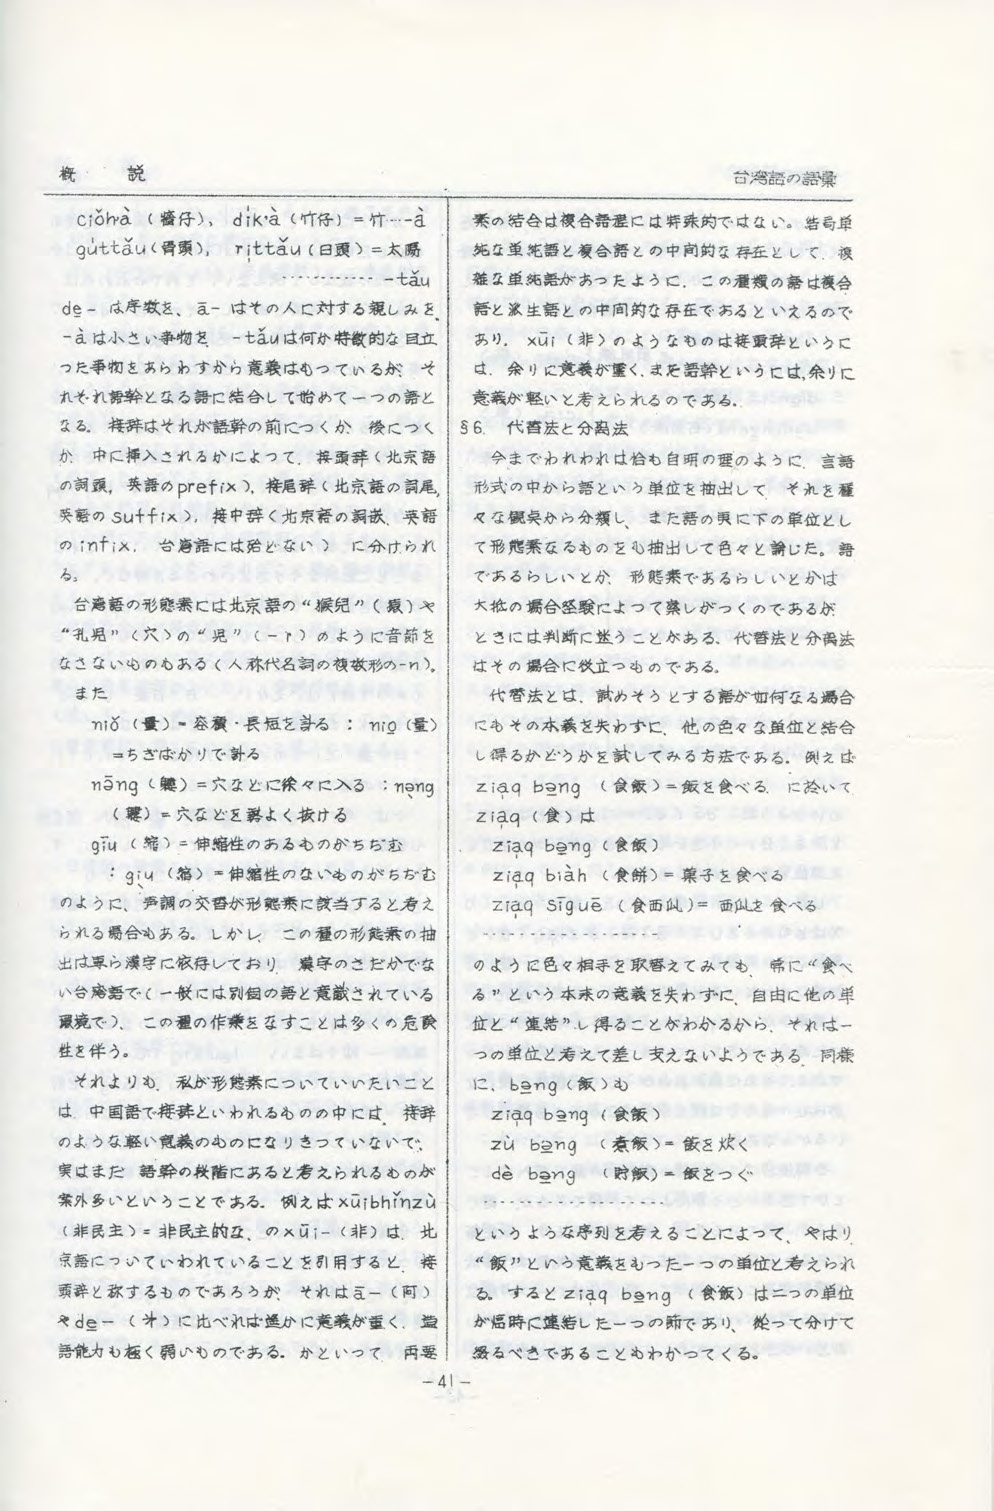 概　説
台湾語の語彙
ciǒh'à（醬仔）, di̍k'à（竹仔）＝竹…-à
gu̍ttǎu（骨頭）, ri̍ttǎu（日頭）＝太陽
……………-tǎu
de̱- は序数を、ā- はその人に対する親しみを
-à は小さい事物を　-tǎu は何か特徴的な目立
った事物をあらわすから意義はもっているが、そ
れそれ語幹となる語に結合して始めて一つの語と
なる。接辞はそれが語幹の前につくか、後につく
か、中に挿入されるかによって、接頭辞（北京語
の詞頭，英語のprefix），接尾辞（北京語の詞尾，
英語のsuffix），接中辞（北京語の詞嵌、英語
のinfix．台湾語には殆どない）に分けられ
る。
台湾語の形態素には北京語の“猴兒”（猿）や
“孔児”（穴）の“児”（-r）のように音節を
なさないものもある（人称代名詞の複数形の-n）。
また
niǒ（量）＝容積・長短を計る：ni̱o̱（量）
＝ちさばかりで計る
nāng（軁）＝穴などに徐々に入る：nạng
（軁）＝穴などを勢よく抜ける
gīu（縮）＝伸縮性のあるものがちぢむ
：giụ（縮）＝伸縮性のないものがちぢむ
のように、声調の交替が形態素に該当すると考え
られる場合もある。しかし、この種の形態素の抽
出は専ら漢字に依存しており、漢字のさだかでな
い台湾語で（一般には別個の語と意識されている
環境で）、この種の作業をなすことは多くの危険
性を伴う。
それよりも、私が形態素についていいたいこと
は、中国語で接辞といわれるものの中には、接辞
のような軽い意義のものになりきっていないで、
実はまだ、語幹の段階にあると考えられるものが
案外多いということである。例えばxūibhǐnzù
（非民主）＝非民主的な、のxūi-（非）は、北
京語についていわれていることを引用すると、接
頭辞と称するものであろうが、それはā-（阿）
やde̱-（第）に比べれば遥かに意義が重く、造
語能力も極く弱いものである。かといって、両要
素の結合は複合語程には特殊的ではない。恰も単
純な単純語と複合語との中間的な存在として、複
雑な単純語があったように、この種類の語は複合
語と派生語との中間的な存在であるといえるので
あり、xūi（非）のようなものは接頭辞というに
は、余りに意義が重く、また語幹というには、余りに
意義が軽いと考えられるのである。
§6．代替法と分離法
今までわれわれは恰も自明の理のように、言語
形式の中から語という単位を抽出して、それを種
々な観点から分類し、また語の更に下の単位とし
て形態素なるものをも抽出して色々と論じた。語
であるらしいとか、形態素であるらしいとかは
大抵の場合経験によって察しがつくのであるが、
ときには判断に迷うことがある。代替法と分離法
はその場合に役立つものである。
代替法とは、試めそうとする語が如何なる場合
にもその本義を失わずに、他の色々な単位と結合
し得るかどうかを試してみる方法である。例えば
zia̍q bə̄ng（食飯）＝飯を食べる、に於いて
zia̍q（食）は
zia̍q bə̱ng（食飯）
zia̍q biàh（食餅）＝菓子を食べる
zia̍q sīguē（食西瓜）＝西瓜を食べる
………………
のように色々相手を取替えてみても、常に“食べ
る”という本来の意義を失わずに、自由に他の単
位と“連結”し得ることがわかるから、それは一
つの単位と考えて差し支えないようである。同様
に、bə̱ng（飯）も
zia̍q bə̱ng（食飯）
zù bə̱ng（煮飯）＝飯を炊く
dè bə̱ng（貯飯）＝飯をつぐ
………………
というような序列を考えることによって、やはり
“飯”という意義をもった一つの単位と考えられ
る。するとzia̍q bə̱ng（食飯）は二つの単位
が臨時に連結した一つの句であり、従って分けて
綴るべきであることもわかってくる。
－41－